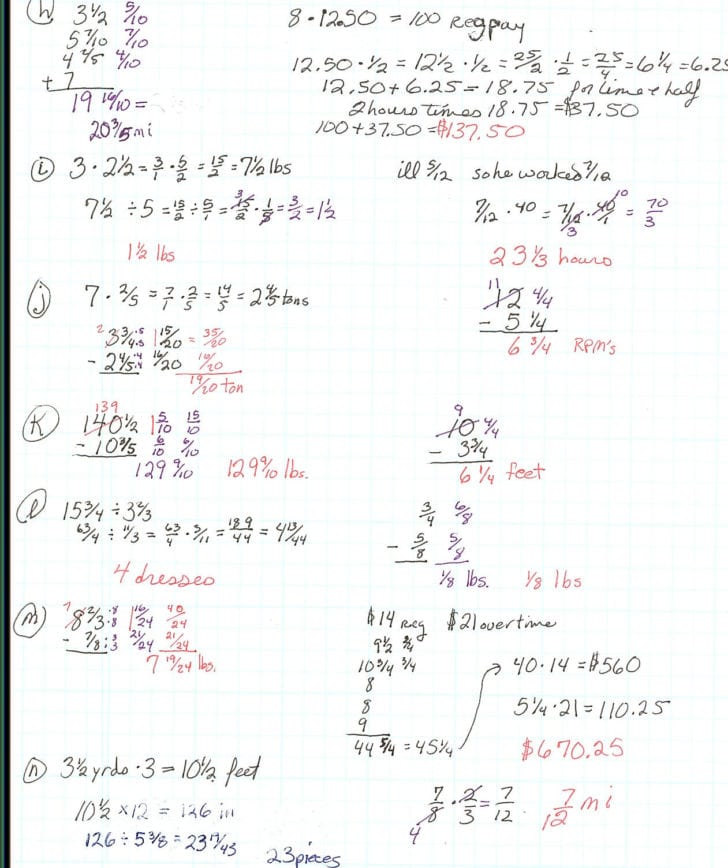 (h) 3 1/2 5/10
5 7/10 7/10
4 2/5 4/10
+ 7
19 16/10 =
20 3/5 mi
8 · 12.50 = 100 Reg pay
12.50 · 1/2 = 12 1/2 · 1/2 = 25/2 · 1/2 = 25/4 = 6 1/4 = 6.25
12.50 + 6.25 = 18.75 for time & half
2 hours times 18.75 = $37.50
100 + 37.50 = $137.50
(i) 3 · 2 1/2 = 3/1 · 5/2 = 15/2 = 7 1/2 lbs
7 1/2 ÷ 5 = 15/2 ÷ 5/1 = 15/2 · 1/5 = 3/2 = 1 1/2
1 1/2 lbs
ill 5/12 so he worked 7/12
7/12 · 40 = 7/12 · 40/1 = 70/3
23 1/3 hours
(j) 7 · 2/5 = 7/1 · 2/5 = 14/5 = 2 4/5 tons
2 3 3/4 ·5 ·5 1 15/20 = 35/20
- 2 4/5 ·4 ·4 16/20 16/20
19/20 ton
11 12 4/4
- 5 1/4
6 3/4 RPM's
(K) 139
140 1/2 1 5/10 15/10
- 10 3/5 6/10 6/10
129 9/10 129 9/10 lbs.
9
10 4/4
- 3 3/4
6 1/4 feet
(l) 15 3/4 ÷ 3 2/3
63/4 ÷ 11/3 = 63/4 · 3/11 = 189/44 = 4 13/44
4 dresses
3/4 6/8
- 5/8 5/8
1/8 lbs. 1/8 lbs
(m) 7 8 2/3 ·8 ·8 1 16/24 40/24
- 7/8 ·3 ·3 21/24 21/24
7 19/24 lbs.
$14 reg $21 overtime
9 1/2 2/4
10 3/4 3/4
8
8
9
44 5/4 = 45 1/4
40 · 14 = $560
5 1/4 · 21 = 110.25
$670.25
(n) 3 1/2 yrds · 3 = 10 1/2 feet
10 1/2 × 12 = 126 in
126 ÷ 5 3/8 = 23 19/43
23 pieces
7/8 · 2/3 = 7/12 7/12 mi
4